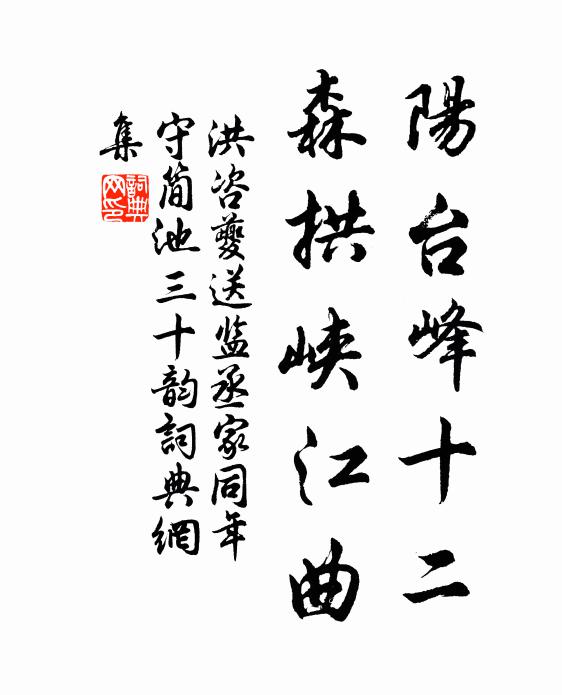 陽台峰十二
森拱峽江曲
洪咨夔送监丞家同年
守简池三十韵詞典網
集
詞典
网印